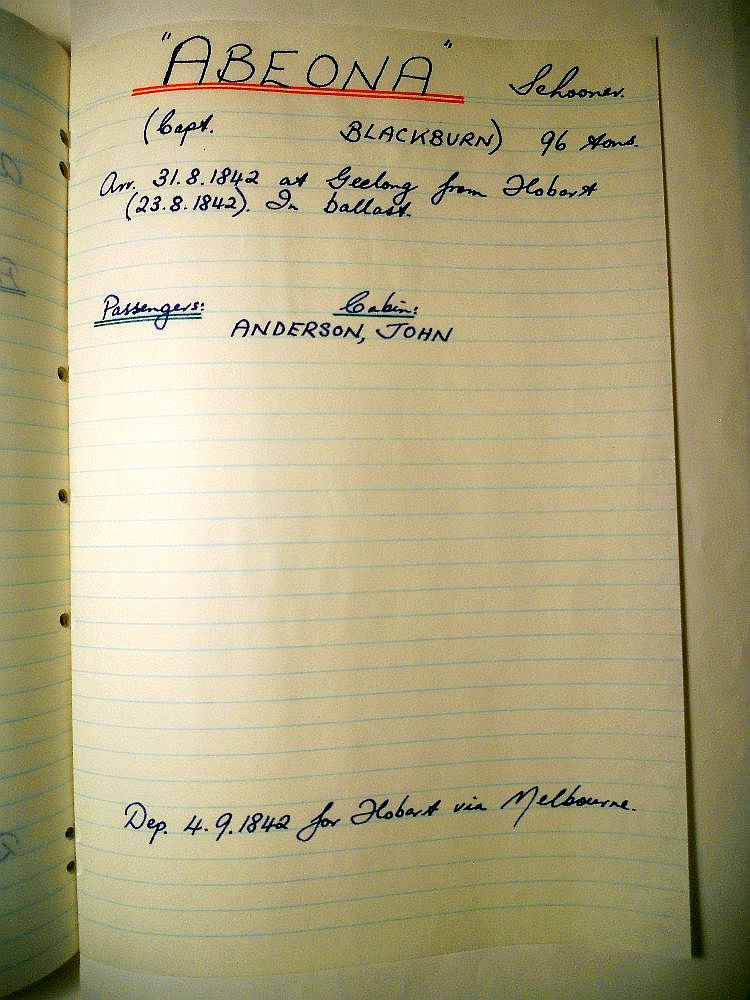 "ABEONA" Schooner.
(Capt. BLACKBURN) 96 tons.
Arr. 31.8.1842 at Geelong from Hobart
(23.8.1842). In ballast.
Passengers: Cabin:
ANDERSON, JOHN
Dep. 4.9.1842 for Hobart via Melbourne.